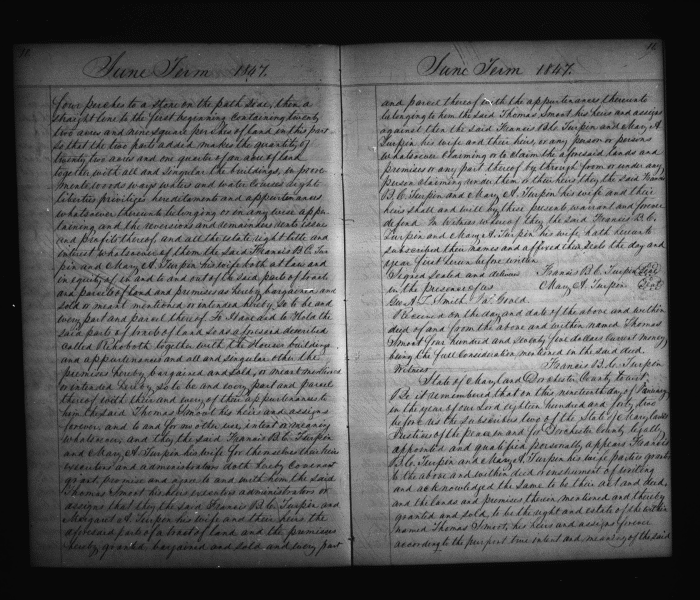 June Term 1847.
four perches to a stone on the path side, then a
straight line to the first beginning containing twenty
two acres and nine square perches of land in this part
so that the two parts added makes the quantity of
twenty two acres and one quarter of an acre of land
together with all and singular the buildings, improve-
ments woods ways waters and water courses rights
liberties privileges hereditaments and appurtenances
whatsoever thereunto belonging or in any wise apper-
taining and the reversions and remainders rents issues
and profits thereof and all the estate right title and
interest whatsoever of them the said Francis B. C. Tur-
pin and Mary A. Turpin his wife both at law and
in equity of in and to and out of the said parts of tracts
and parcels of land and premises as hereby bargained and
sold or meant mentioned or intended hereby so to be and
every part and parcel thereof To Have and to Hold the
said parts of tracts of land so as aforesaid described
called Rehoboth together with the Houses buildings
and appurtenances and all and singular other the
premises hereby bargained and sold, or meant mentioned
or intended hereby so to be and every part and parcel
thereof with their and every of their appurtenances to
him the said Thomas Smoot his heirs and assigns
forever and to and for no other use, intent or meaning
whatsoever and they the said Francis B. C. Turpin
and Mary A. Turpin his wife for themselves their heirs
executors and administrators doth hereby covenant
grant promise and agree to and with him the said
Thomas Smoot his heirs executors administrators or
assigns that they the said Francis B. C. Turpin and
Margaret A Turpin his wife and their heirs the
aforesaid parts of a tract of land and the premises
hereby granted bargained and sold and every part
June Term 1847.
and parcel thereof with the appurtenances thereunto
belonging to him the said Thomas Smoot his heirs and assigns
against them the said Francis B. C. Turpin and Mary A
Turpin his wife and their heirs, or any person or persons
whatsoever claiming or to claim the aforesaid lands and
premises or any part thereof by through from or under any
person claiming under them or their heirs they the said Francis
B. C. Turpin and Mary A. Turpin his wife and their
heirs shall and will by these present warrant and forever
defend. In Witness whereof they the said Francis B. C.
Turpin and Mary A Turpin his wife hath hereunto
subscribed their names and affixed their Seals the day and
year first herein before written
Signed sealed and deliver Francis B C Turpin Seal
in the presence of us Mary A. Turpin Seal
Geo A Z Smith Jas Gould.
Received on the day and date of the above and within
deed of and from the above and within named Thomas
Smoot four hundred and seventy four dollars current money
being the full consideration mentioned in the said deed.
Witness Francis B. C. Turpin
State of Maryland Dorchester County to wit
Be it remembered that on this nineteenth day of January
in the year of our Lord eighteen hundred and forty two
before us the subscribers two of the State of Maryland
Justices of the peace in and for Dorchester County legally
appointed and qualified personally appears Francis
B. C. Turpin and Mary A. Turpin his wife parties grantors
to the above and within deed or instrument of writing
and acknowledged the same to be their act and deed,
and the lands and premises therein mentioned and thereby
granted and sold, to be the right and estate of the within
named Thomas Smoot, his heirs and assigns forever
according to the purport true intent and meaning of the said